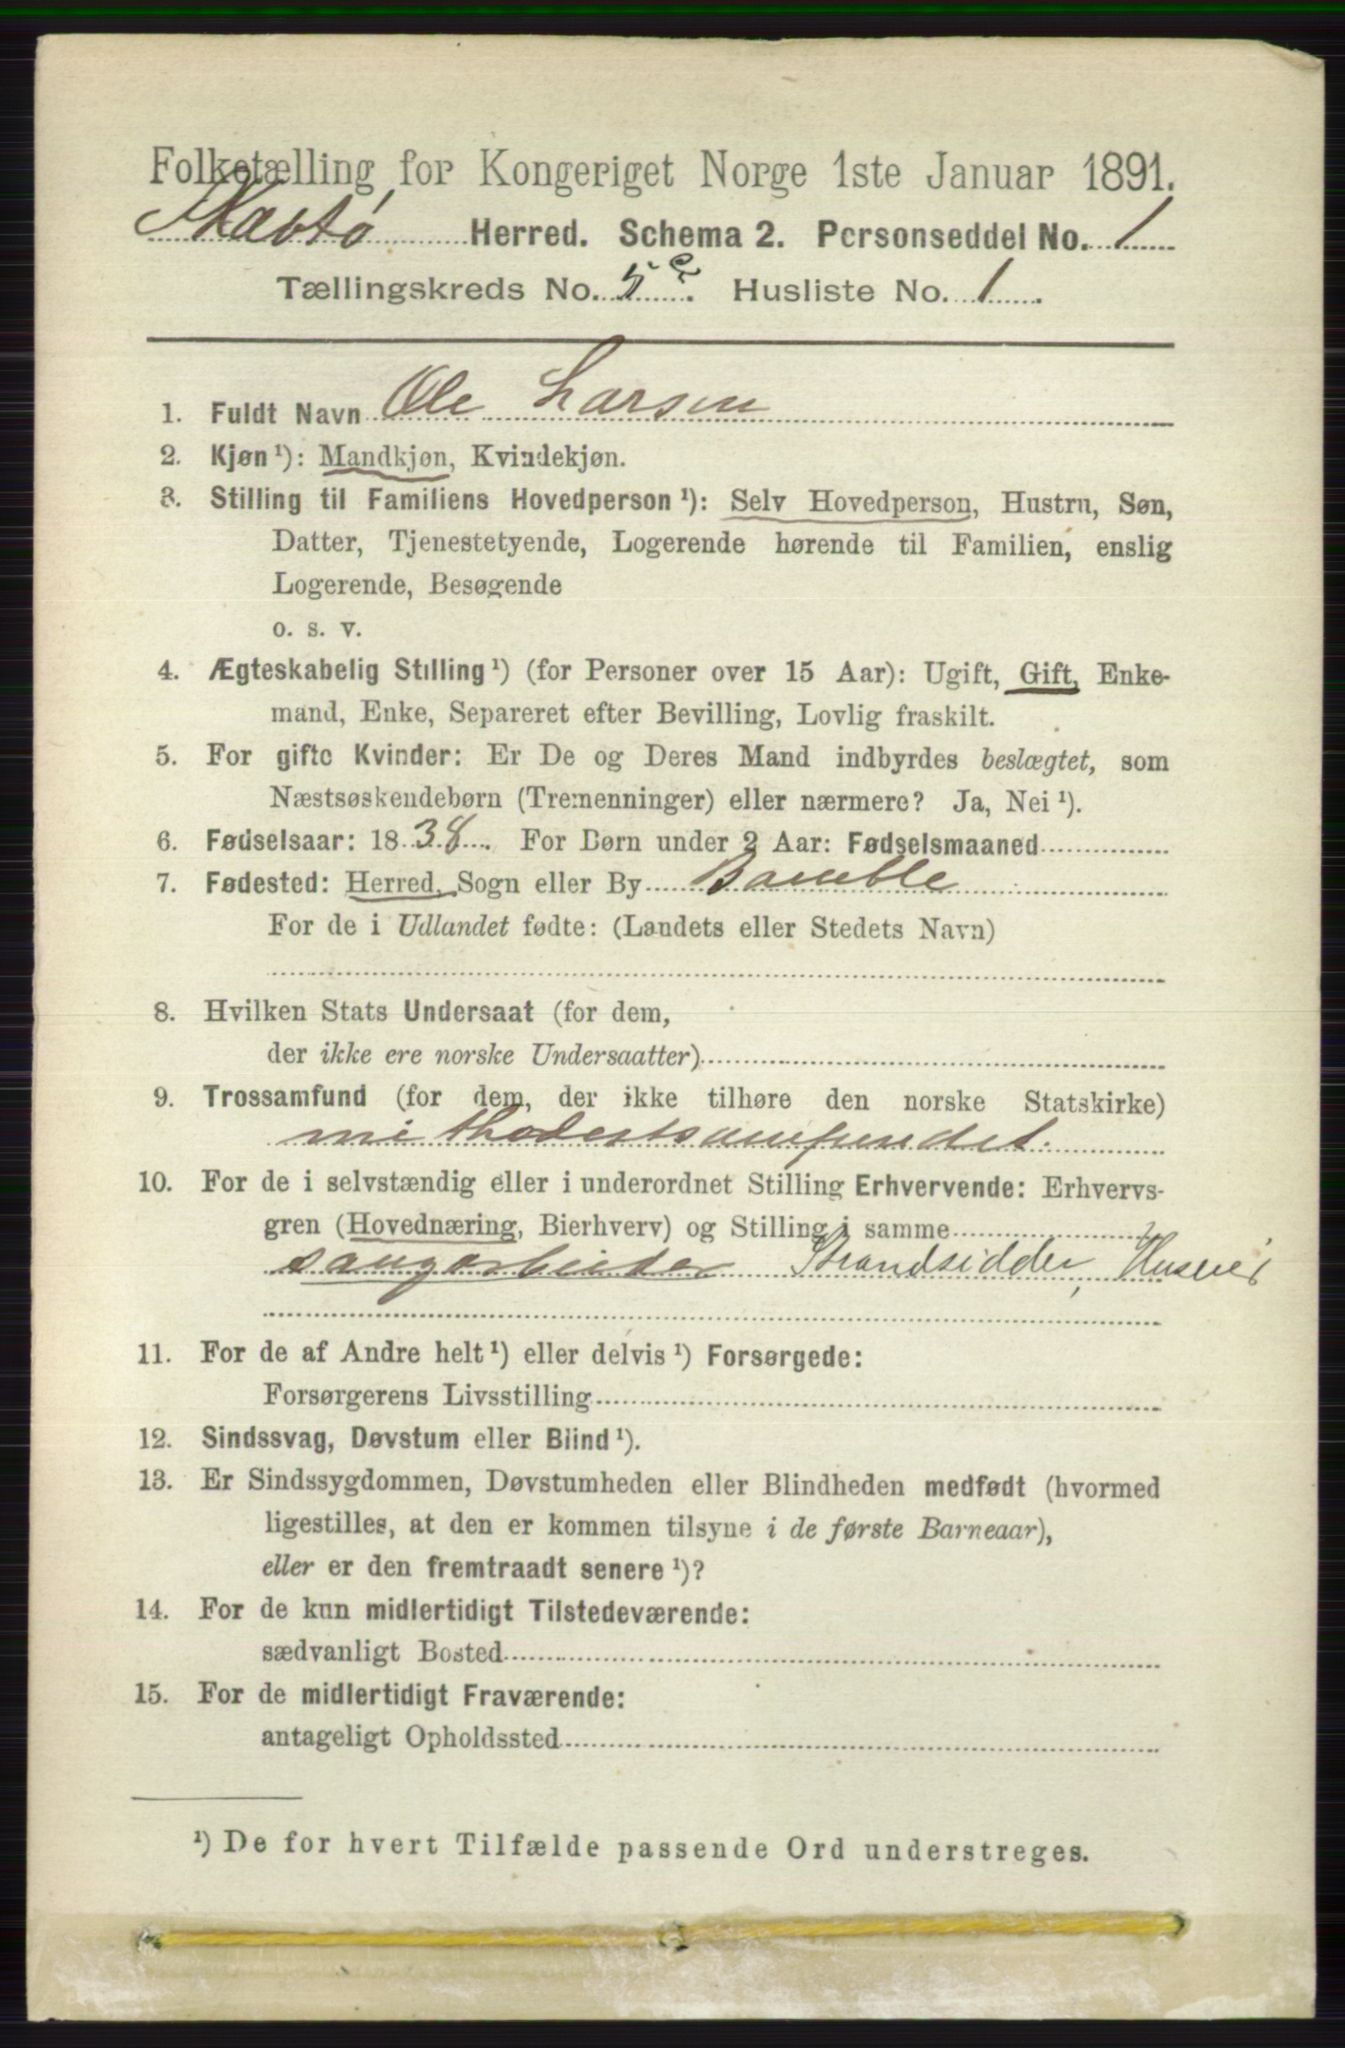 Folketælling for Kongeriget Norge 1ste Januar 1891.
Skaatø Herred. Schema 2. Personseddel No. 1
Tællingskreds No. 5 Husliste No. 1.
1. Fuldt Navn Ole Larsen
2. Kjøn ¹): Mandkjøn, Kvindekjøn.
3. Stilling til Familiens Hovedperson ¹): Selv Hovedperson, Hustru, Søn,
Datter, Tjenestetyende, Logerende hørende til Familien, enslig
Logerende, Besøgende
o. s. v.
4. Ægteskabelig Stilling ¹) (for Personer over 15 Aar): Ugift, Gift, Enke-
mand, Enke, Separeret efter Bevilling, Lovlig fraskilt.
5. For gifte Kvinder: Er De og Deres Mand indbyrdes beslægtet, som
Næstsøskendebørn (Tremenninger) eller nærmere? Ja, Nei ¹).
6. Fødselsaar: 1838. For Børn under 2 Aar: Fødselsmaaned
7. Fødested: Herred, Sogn eller By Bamble
For de i Udlandet fødte: (Landets eller Stedets Navn)
8. Hvilken Stats Undersaat (for dem,
der ikke ere norske Undersaatter)
9. Trossamfund (for dem, der ikke tilhøre den norske Statskirke)
methodestsamfundet.
10. For de i selvstændig eller i underordnet Stilling Erhvervende: Erhvervs-
gren (Hovednæring, Bierhverv) og Stilling i samme
saugarbeider Strandsidder, Huseier
11. For de af Andre helt ¹) eller delvis ¹) Forsørgede:
Forsørgerens Livsstilling
12. Sindssvag, Døvstum eller Blind ¹).
13. Er Sindssygdommen, Døvstumheden eller Blindheden medfødt (hvormed
ligestilles, at den er kommen tilsyne i de første Barneaar),
eller er den fremtraadt senere ¹)?
14. For de kun midlertidigt Tilstedeværende:
sædvanligt Bosted
15. For de midlertidigt Fraværende:
antageligt Opholdssted
¹) De for hvert Tilfælde passende Ord understreges.